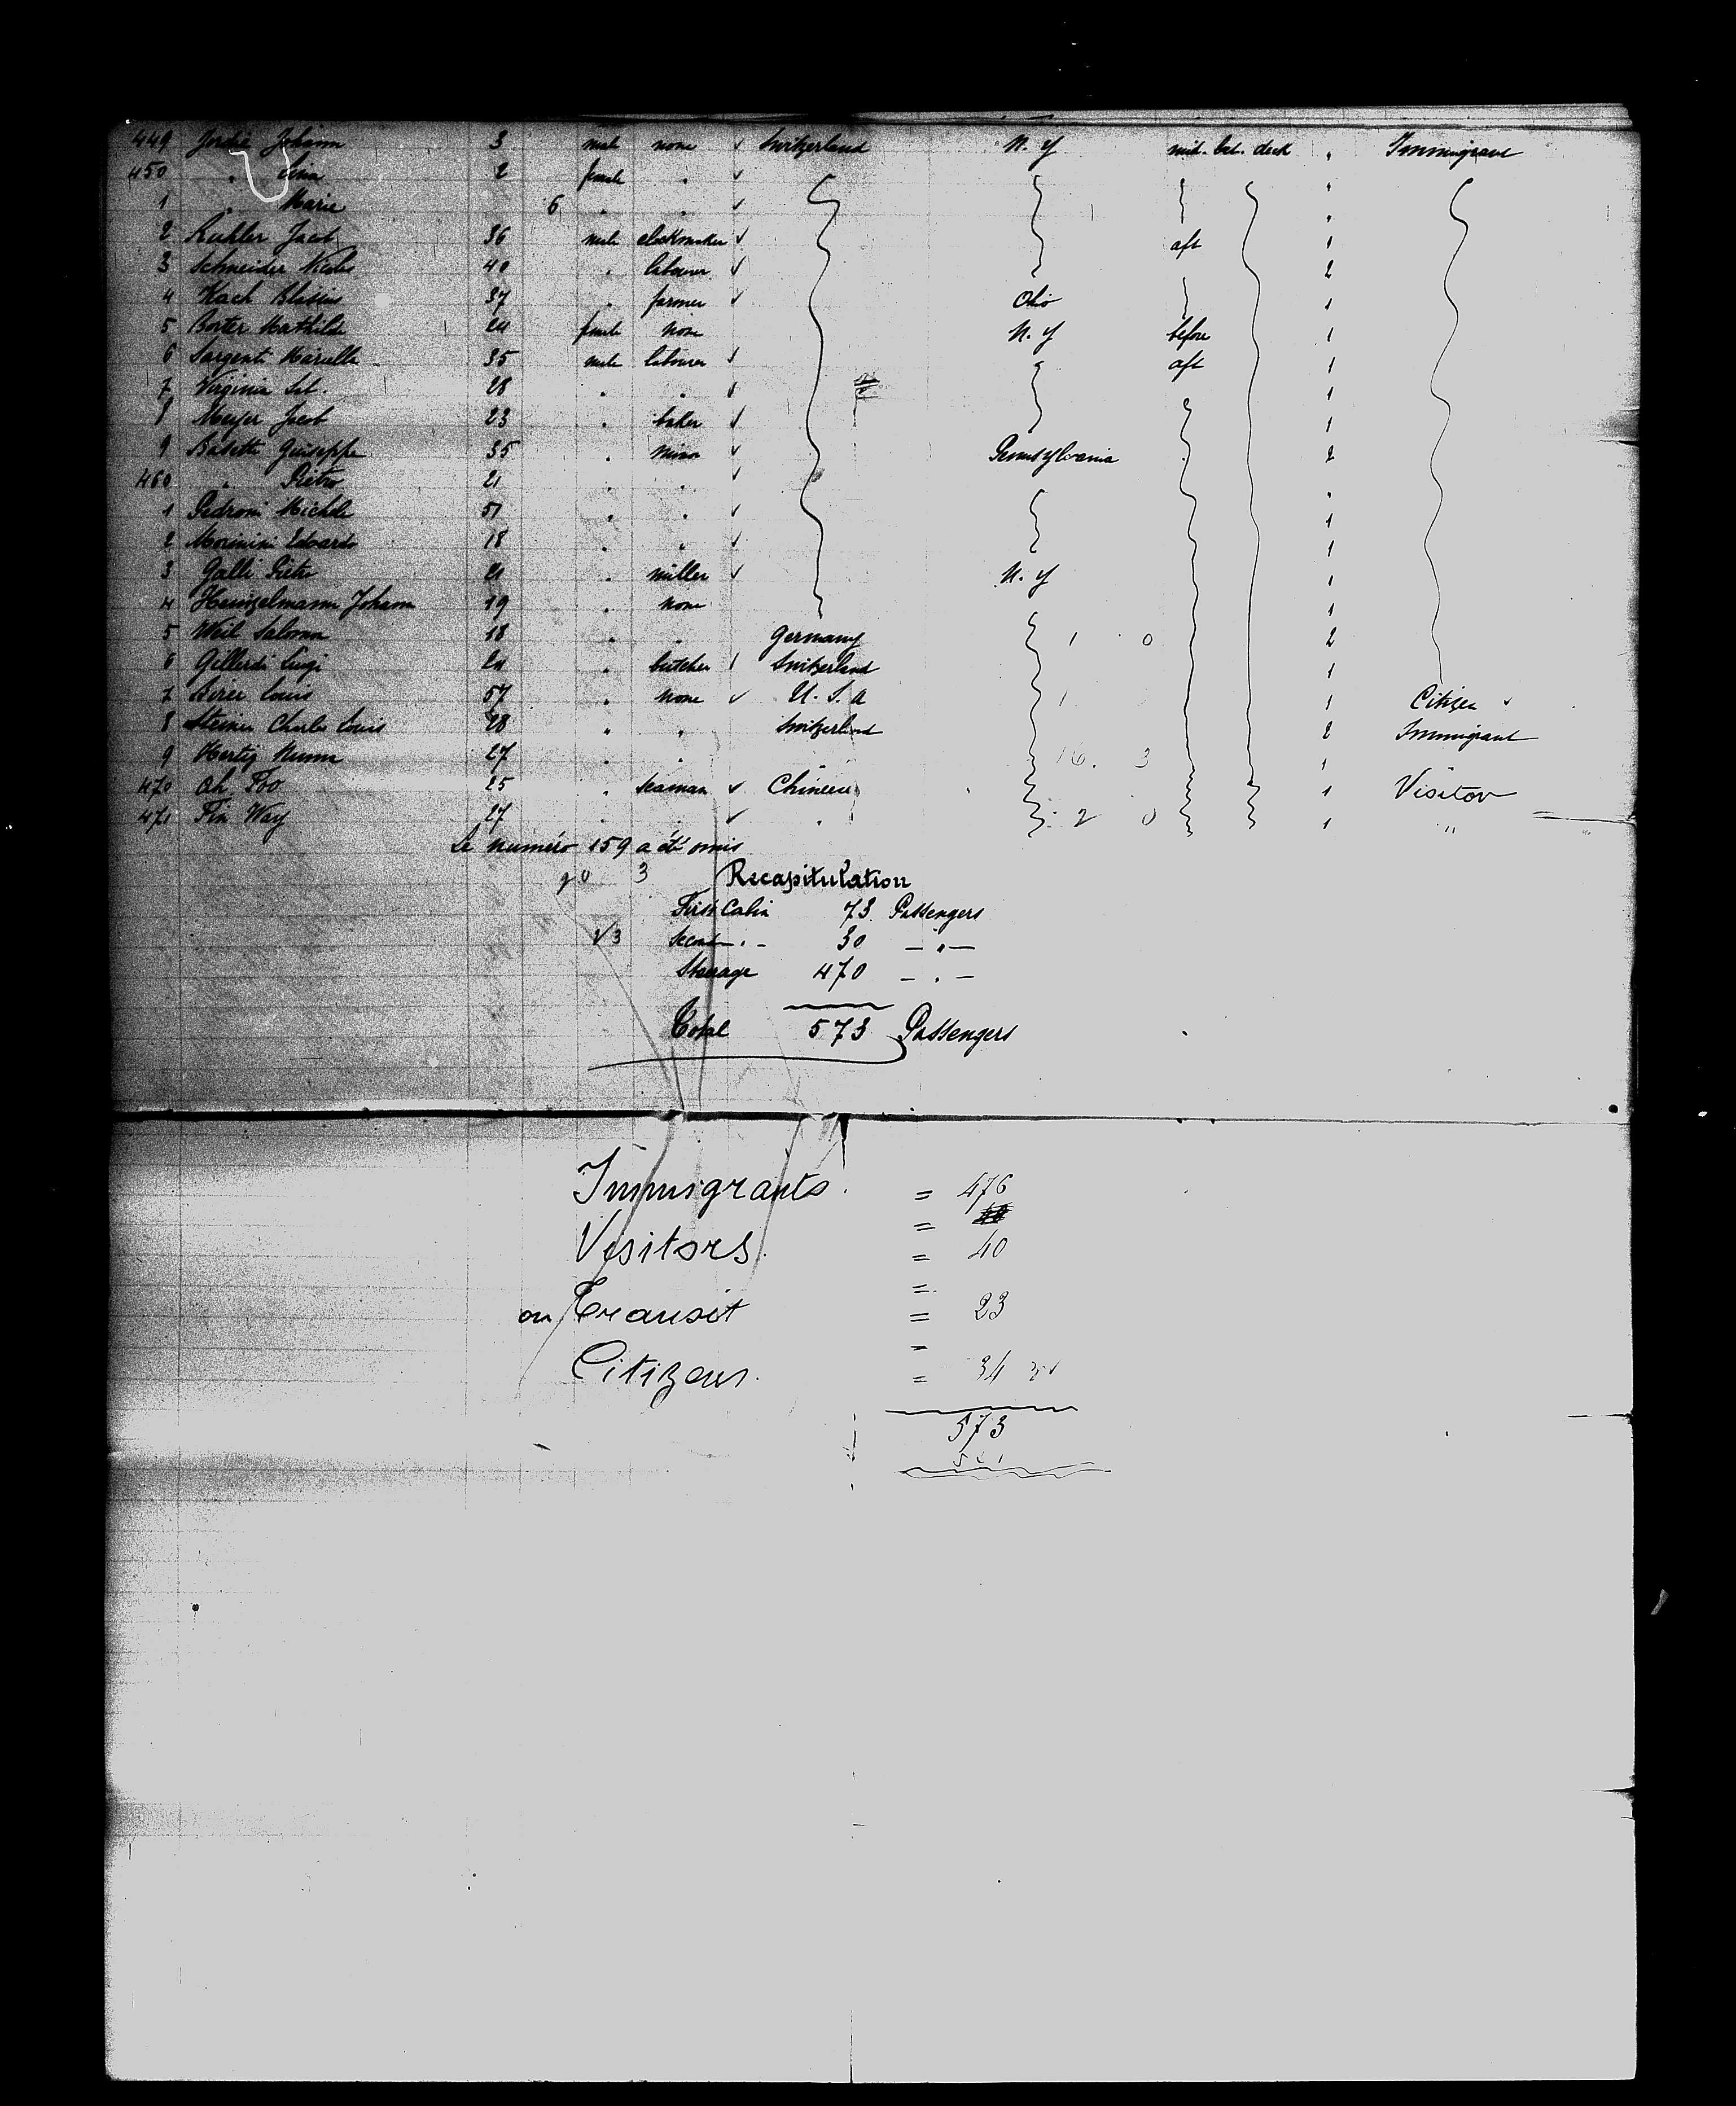 449 Johann 3 male none ✓ Switzerland N. Y mid. bet. deck " Immigrant
450 " Lina 2 female " ✓ "
1 " Marie 6 " " ✓ "
2 Kuhler Jacob 36 male clockmaker ✓ aft 1
3 Schneider Nicolas 40 " labourer ✓ 2
4 Koch 37 " farmer ✓ Ohio 1
5 Borter Mathilde 24 female none N. Y before 1
6 Sargenti 35 male labourer ✓ aft 1
7 Virginia 28 " " 1
8 Meyer Jacob 23 " baker ✓ 1
9 Giuseppe 35 " miner ✓ Pennsylvania 2
460 " Pietro 21 " " ✓ "
1 Pedroni Michele 51 " " ✓ 1
2 Edoardo 18 " " ✓ 1
3 Galli Pietro 21 " miller ✓ N. Y 1
4 Heinzelmann Johann 19 " none 1
5 Weil Salomon 18 " " Germany 1 0 2
6 Luigi 24 " butcher Switzerland 1
7 Louis 57 " none ✓ U. S. A 1 1 Citizen
8 Charles Louis 28 " " Switzerland 2 Immigrant
9 Hertig Numa 27 " " 16. 3 1
470 Ah Foo 25 " seaman ✓ Chinese 1 Visitor
471 Fin Way 27 " " ✓ " 2 0 1 "
Le numéro 159 a été omis
3 Recapitulation
First Cabin 73 Passengers
Second " 30 — " —
Steerage 470 — " —
Total 573 Passengers
Immigrants = 476
Visitors. = 40
on Transit = 23
Citizens. = 34
573